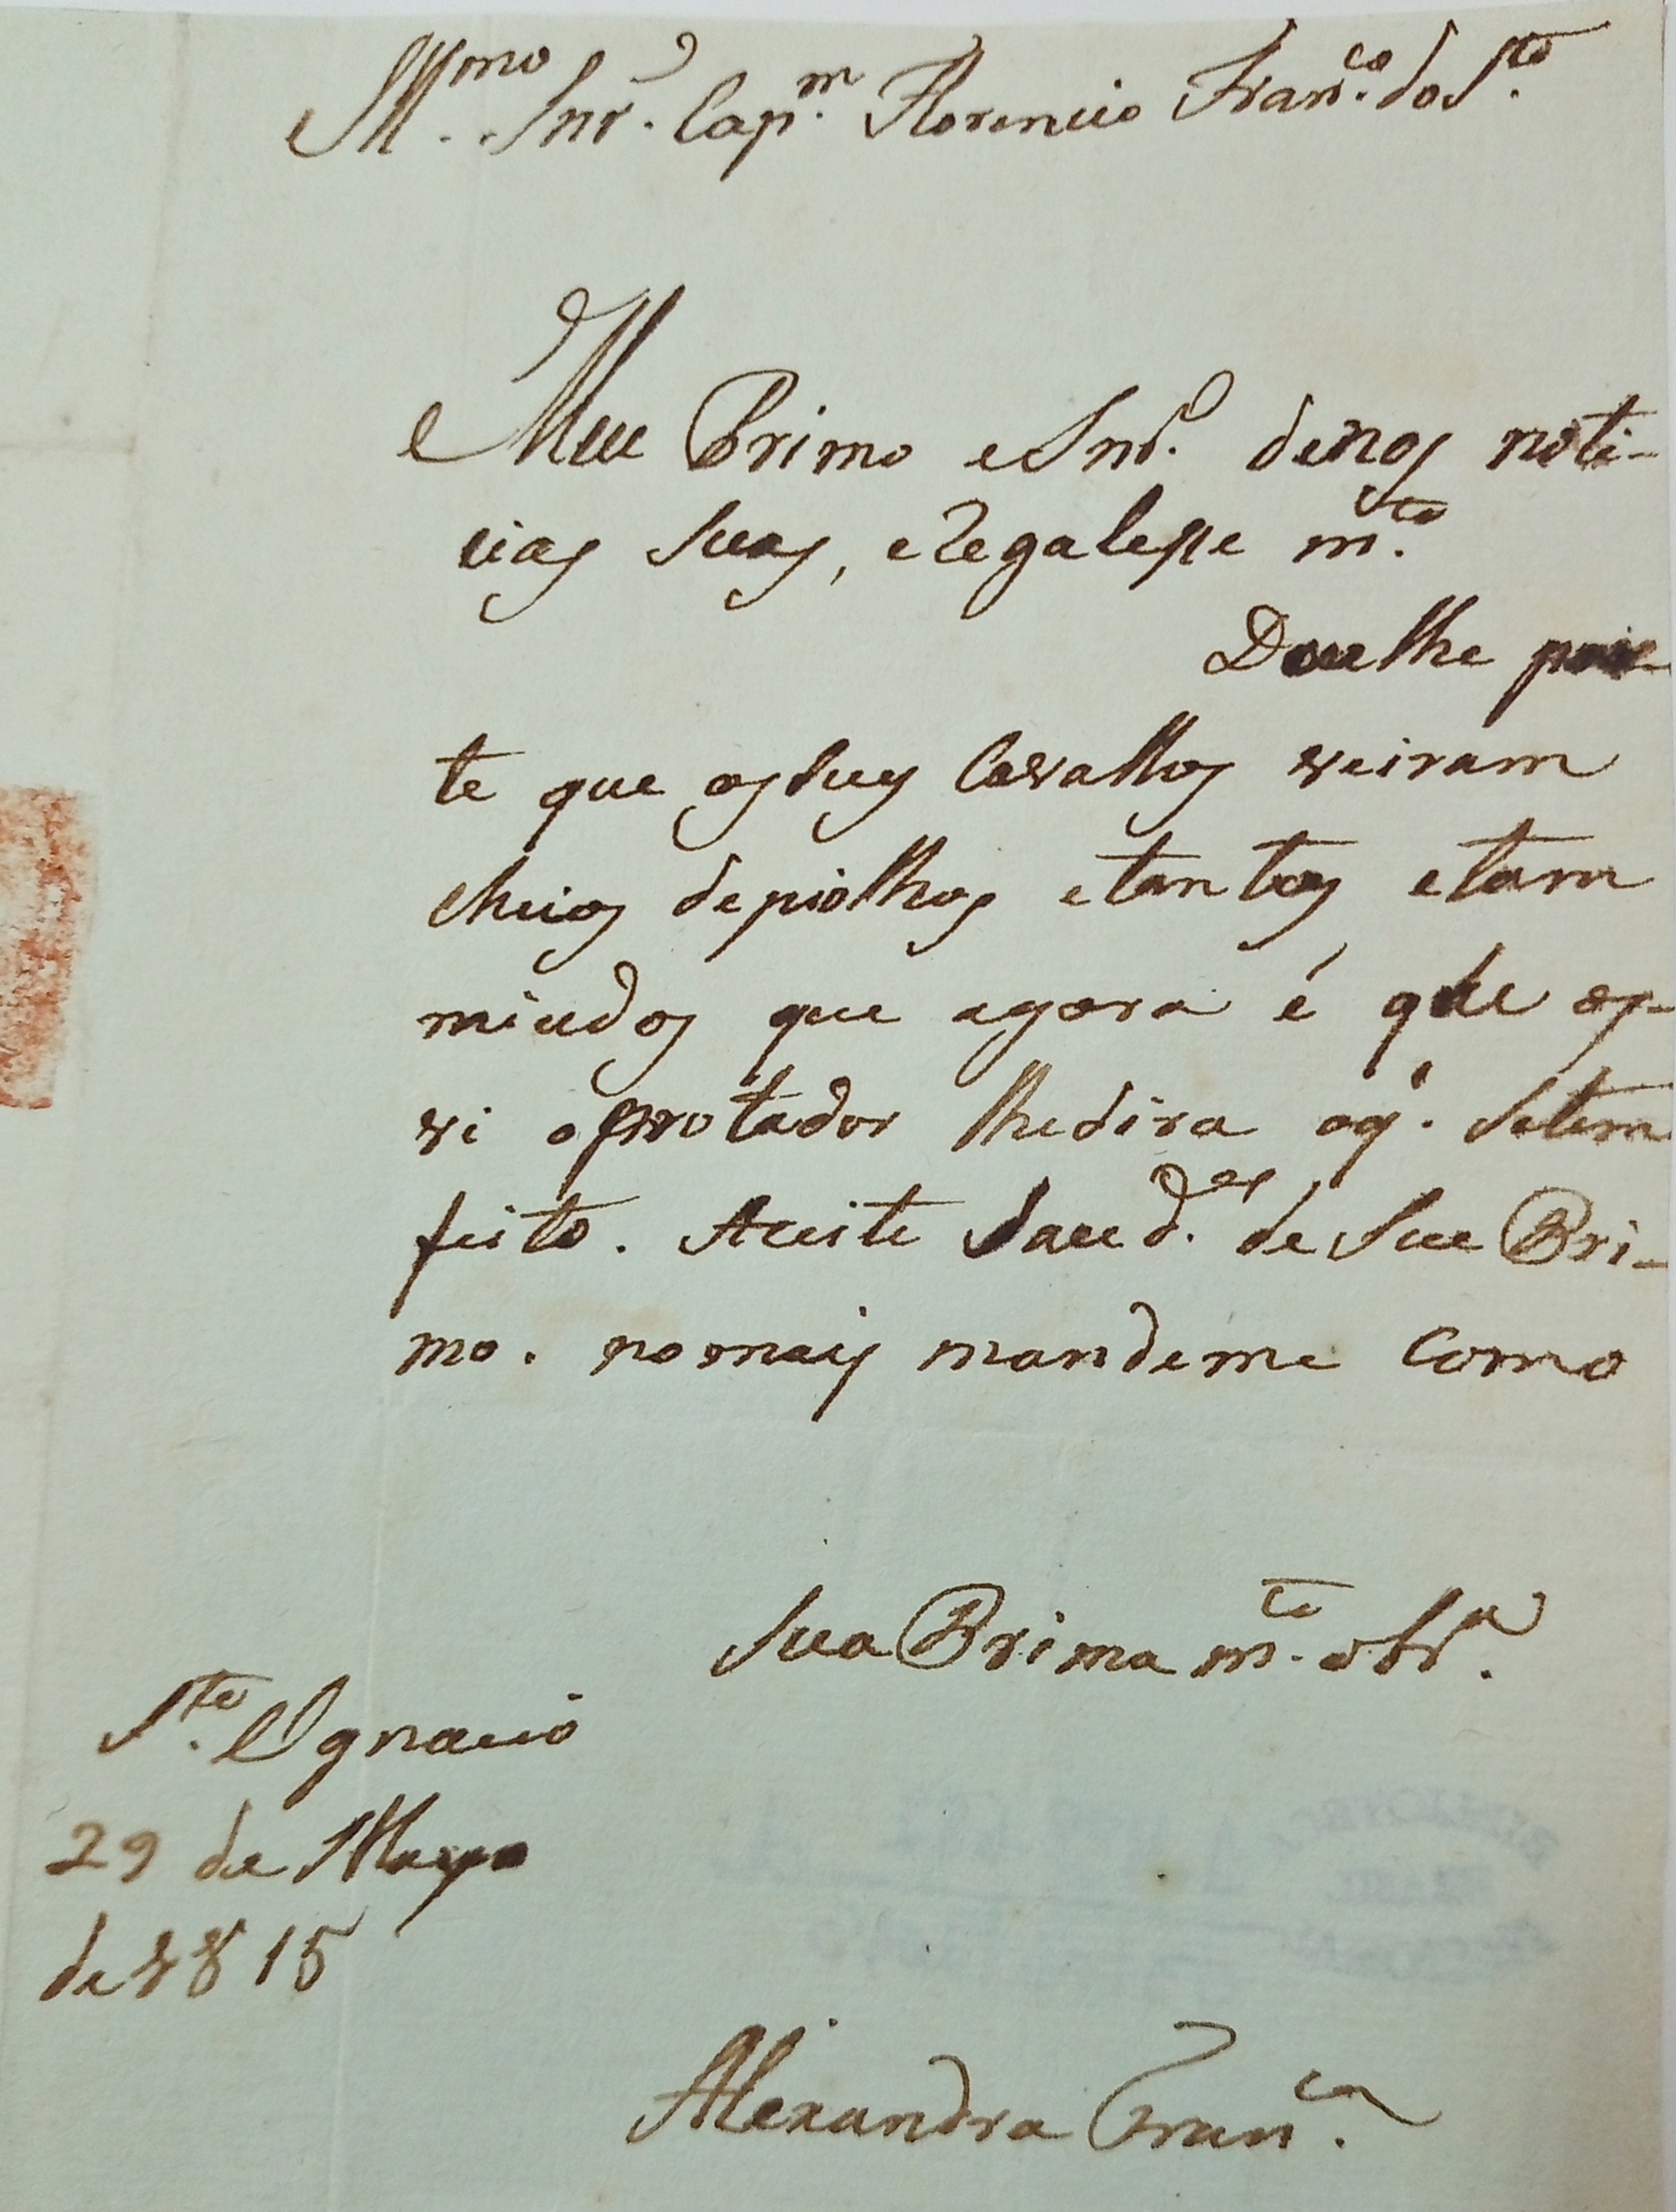 Illmo. Snr. Capm. Florencio Franco. do Sto.
Meu Primo e Snr. denos noti-
cias suas, e Regalesse mto.
Doulhe par-
te que os seus Cavallos vieram
cheios de piolhos e tantos e tam
miudos que agora é que os
vi o portador lhe dira o q'. se tem
feito. Aceite Saudes. de seu Pri-
mo. no mais mandeme como
Sua Prima mto. obra.
Sto. Ignacio
29 de Mayo
de 1815
Alexandra Franca.